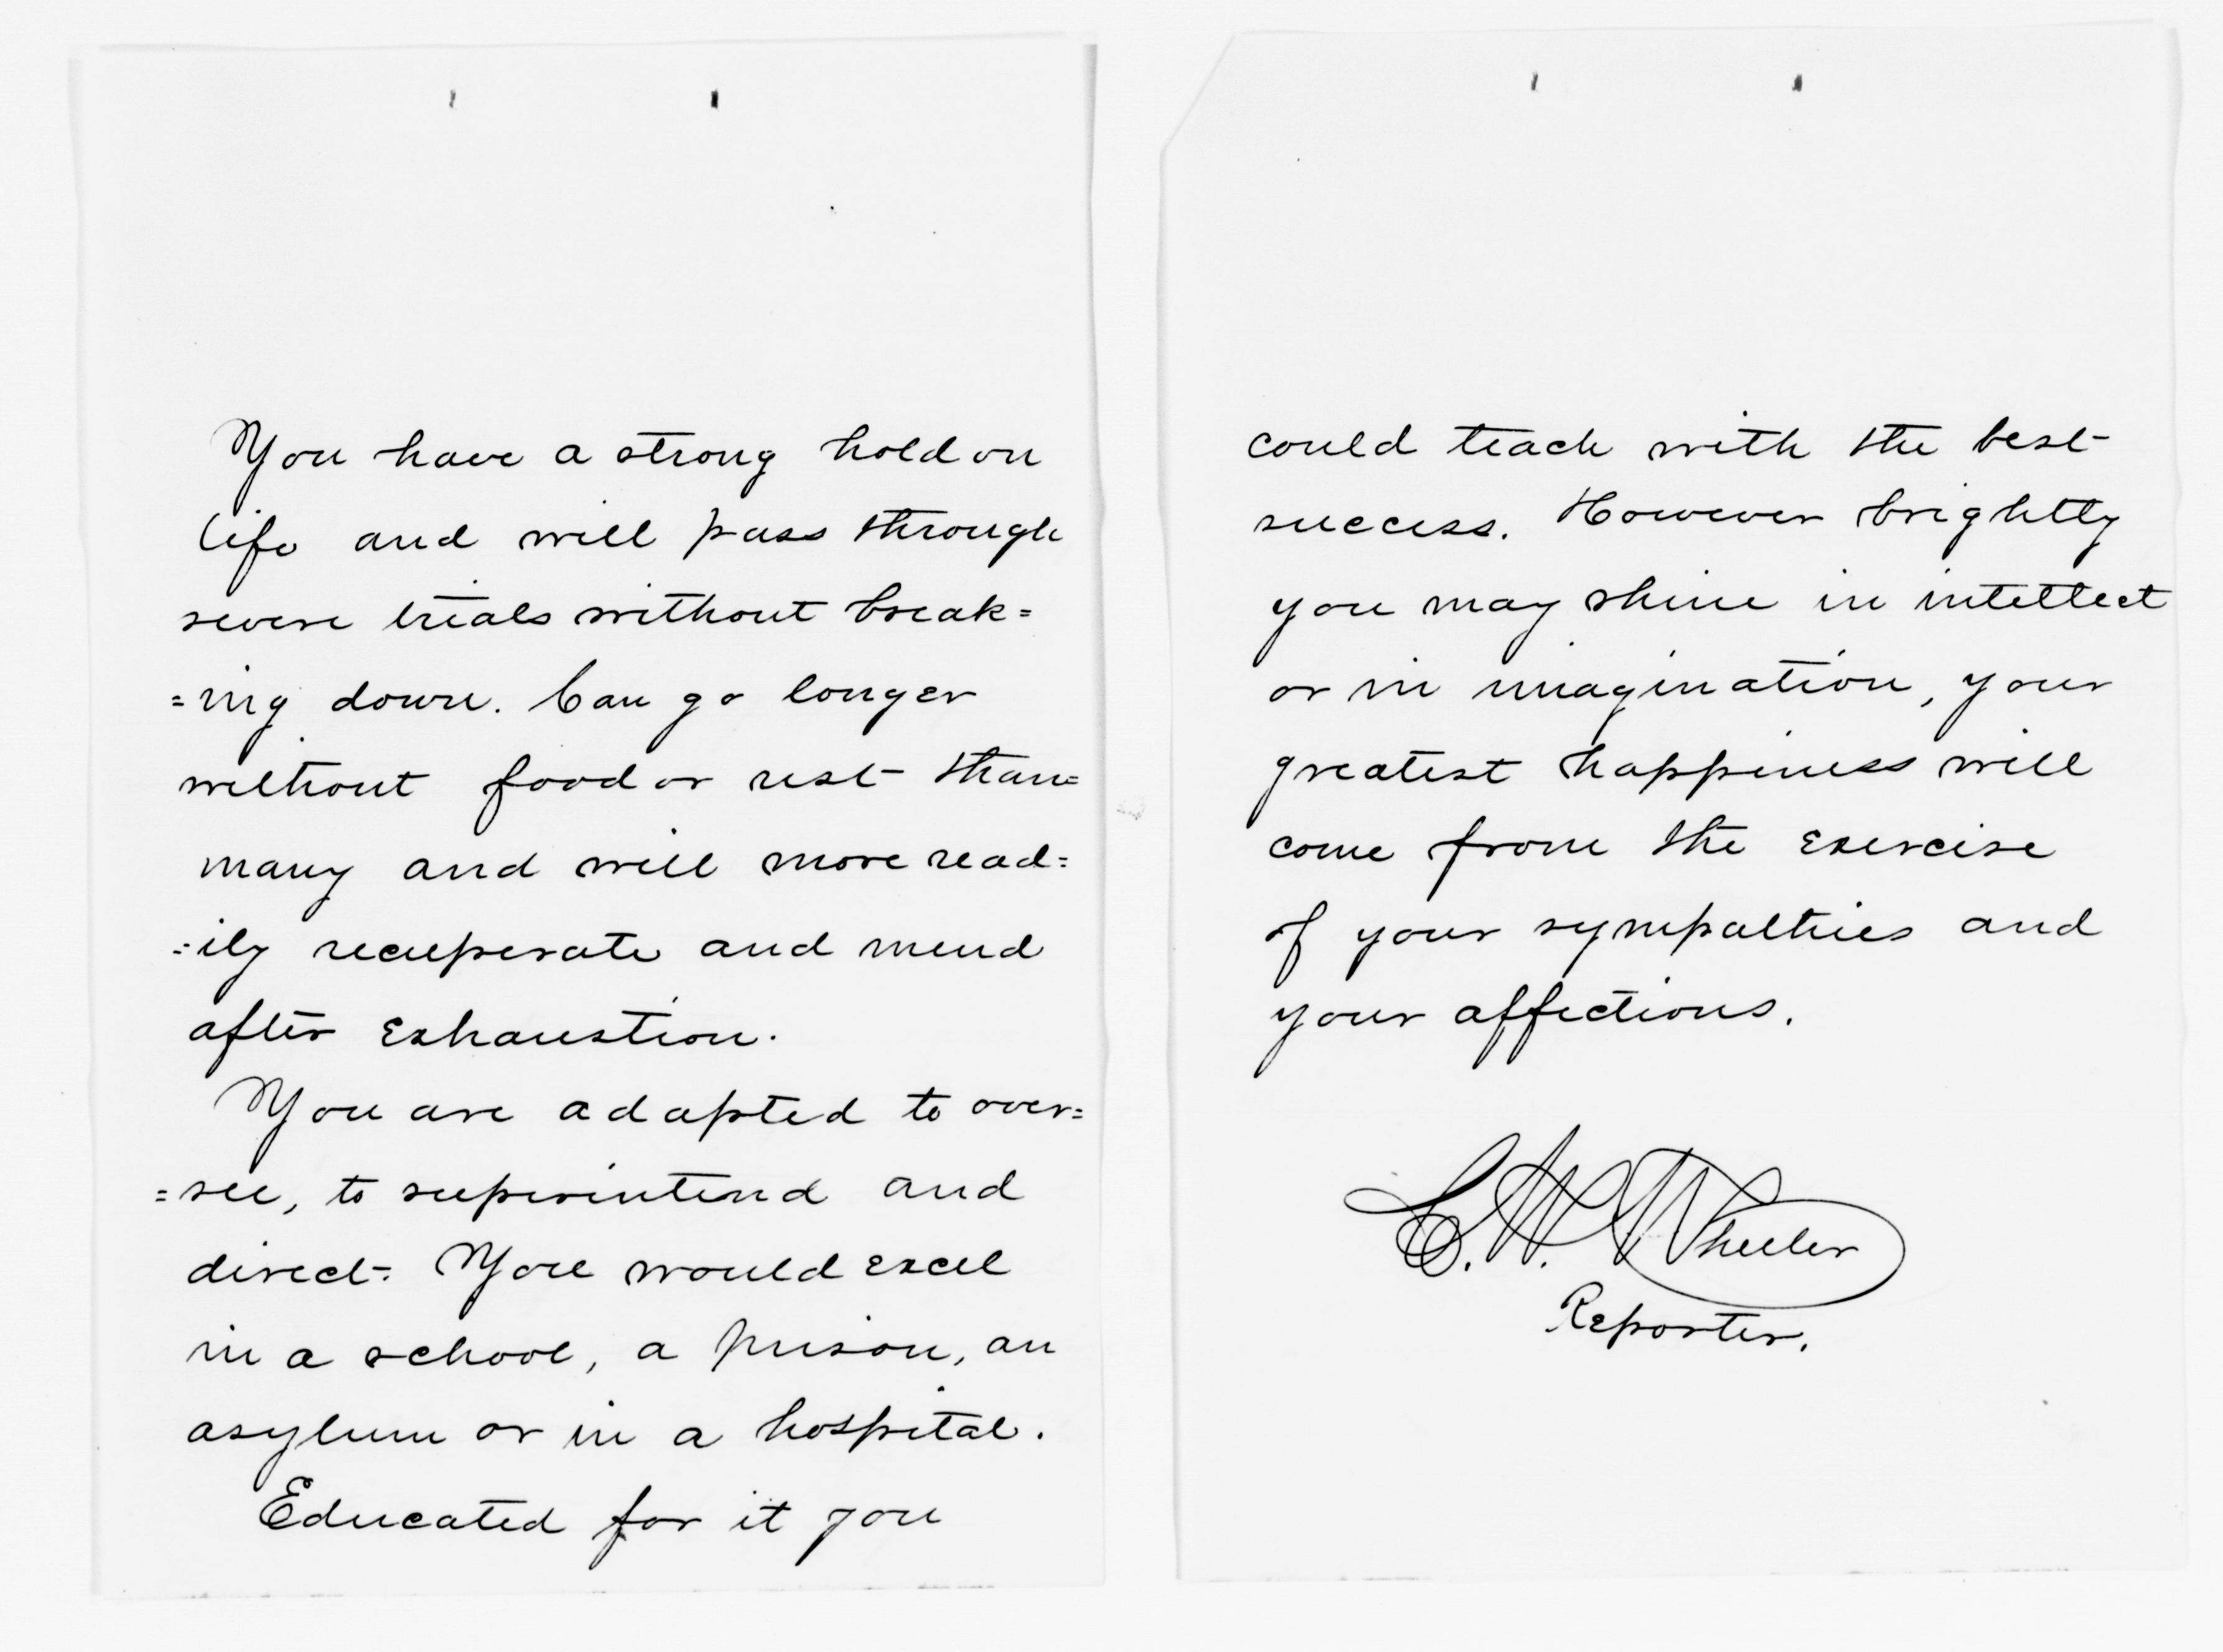 You have a strong hold on
life and will pass through
severe trials without break=
=ing down. Can go longer
without food or rest than=
many and will more read=
=ily recuperate and mend
after exhaustion.
You are adapted to over=
=see, to superintend and
direct. You would excel
in a school, a prison, an
asylum or in a hospital.
Educated for it you
could teach with the best
success. However brightly
you may shine in intellect
or in imagination, your
greatest happiness will
come from the exercise
of your sympathies and
your affections.
C. W. Wheeler
Reporter.